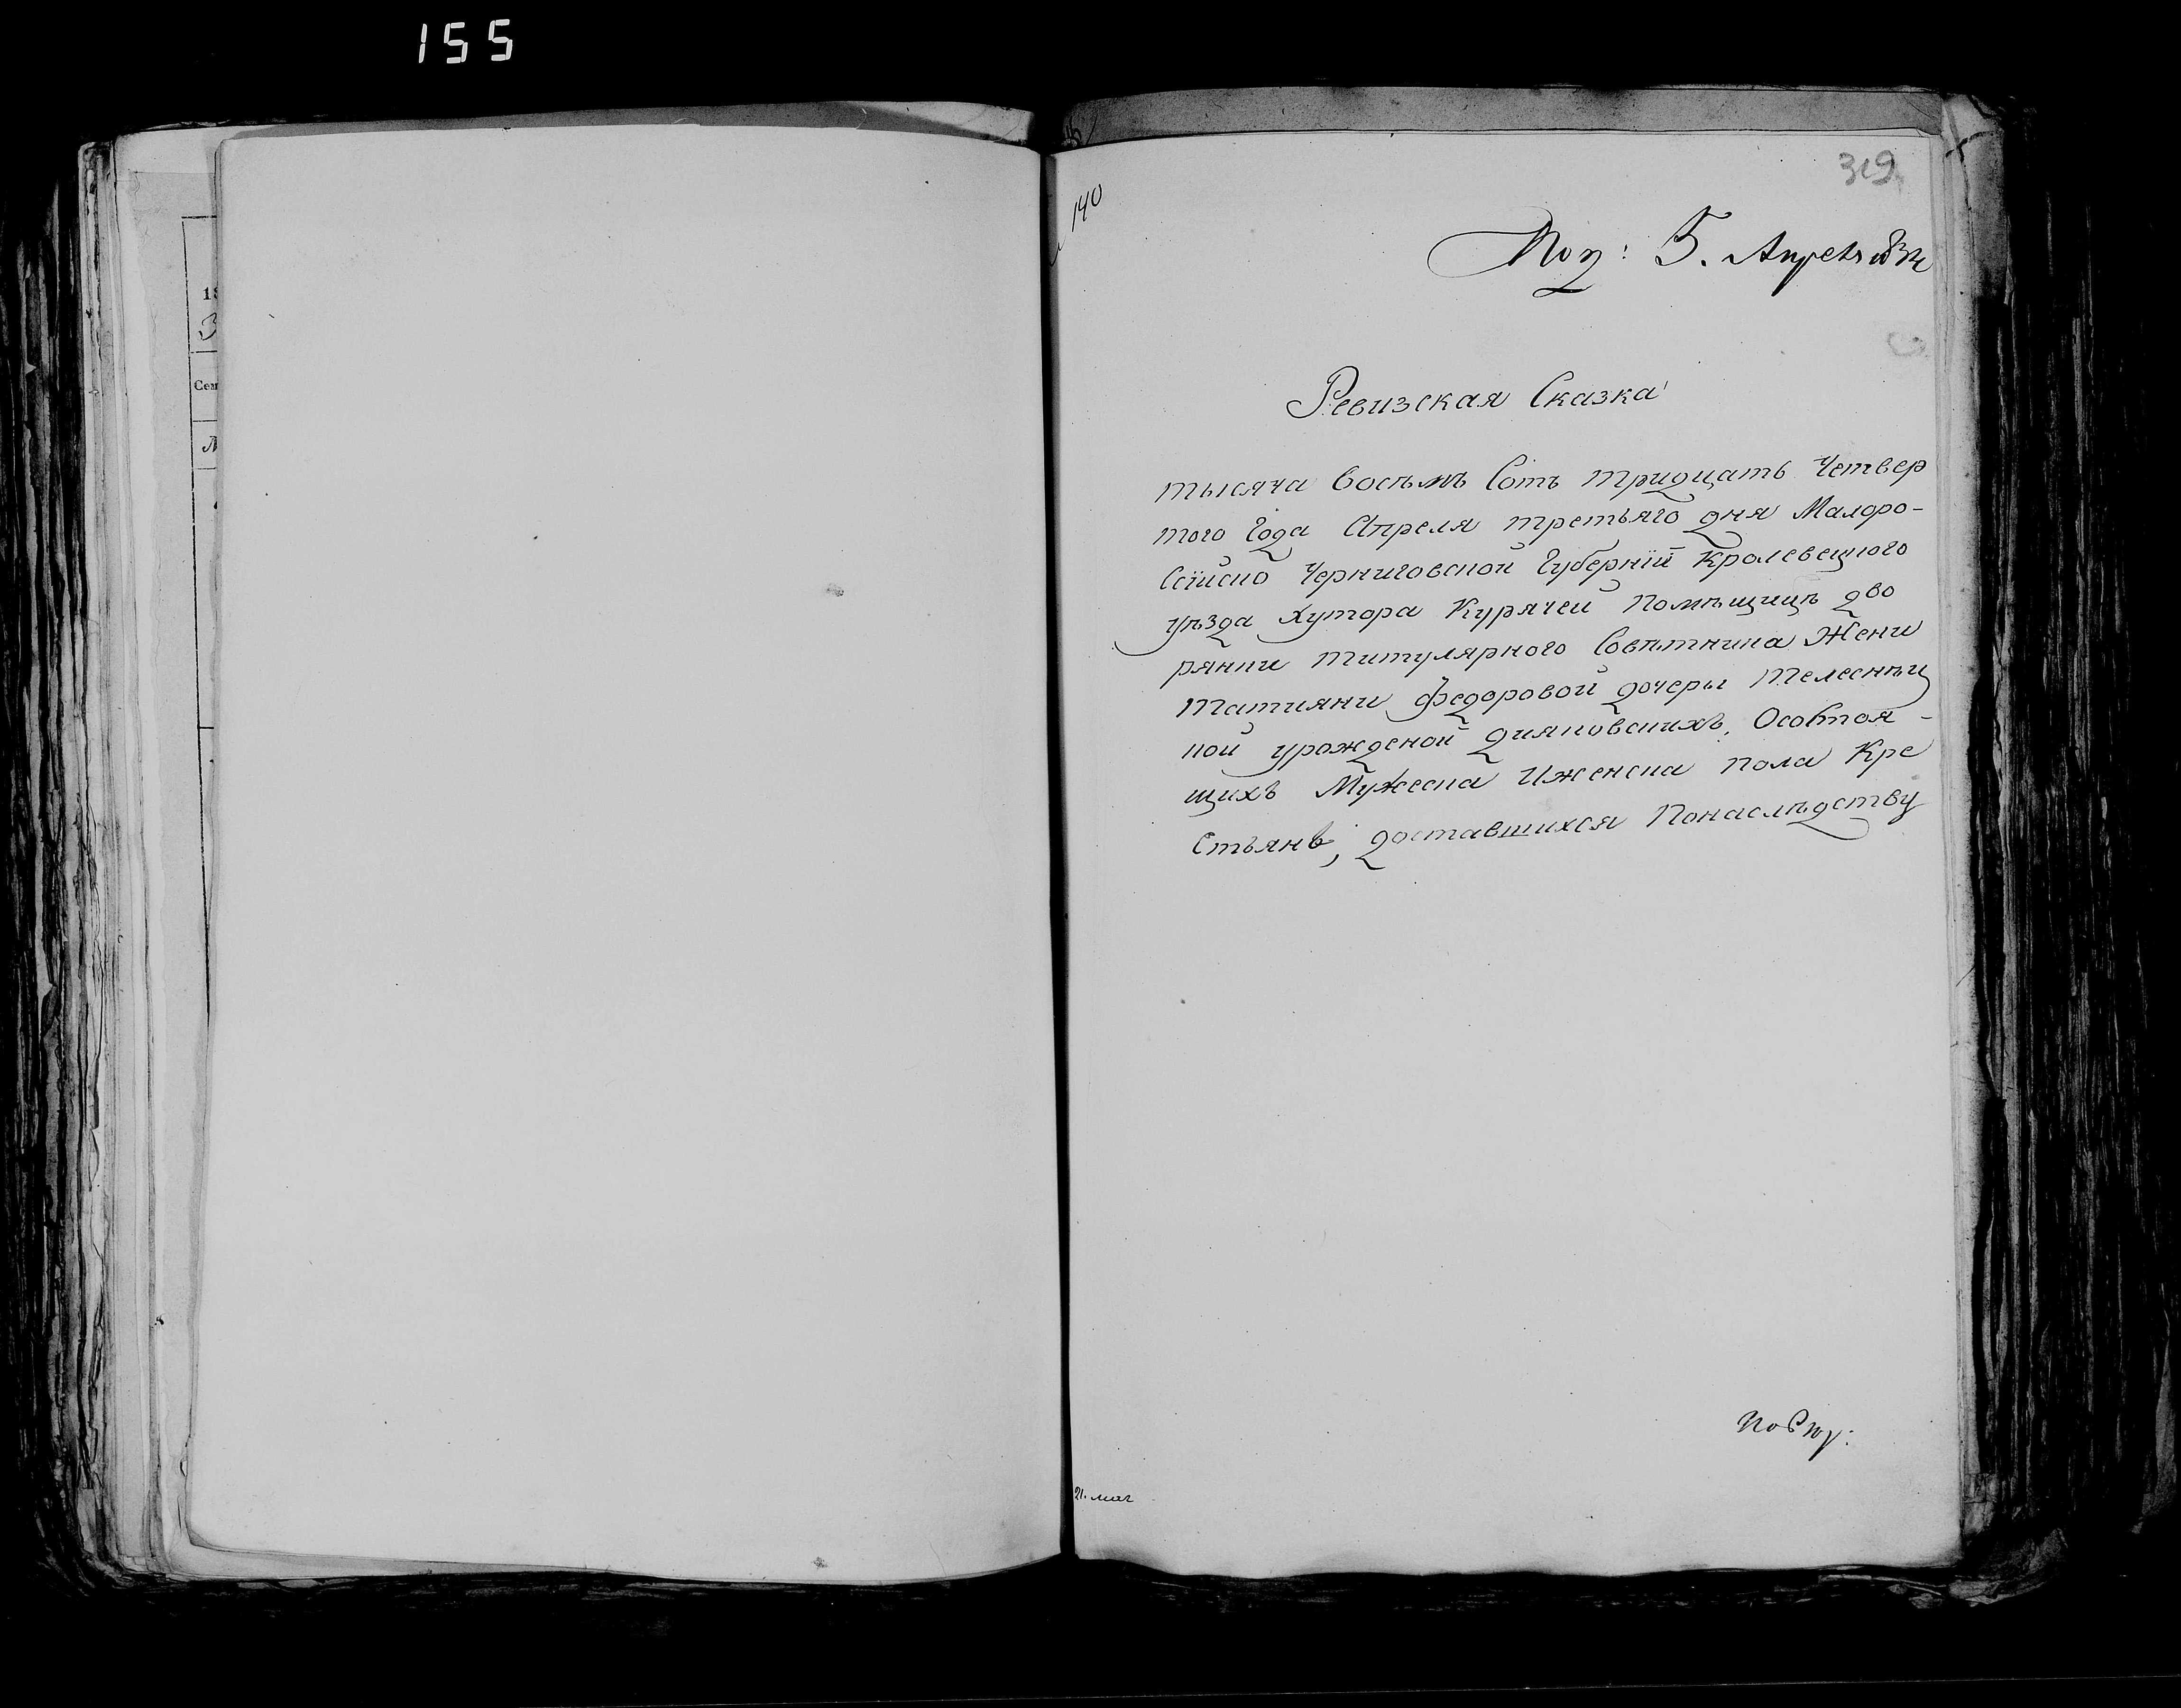 155
319
140
Пол: 5. Апреля 834
Ревизская Сказка
тысяча восѣмъ Сотъ тридцать Четвер
того Года Апреля третьяго дня Малоро-
Сспйско Черниговской Губерніи Кролевецкого
уѣзда Хутора Курячей Помѣщицѣ дво
рянки титулярного Совѣтника Жени
Татияни Федоровой дочеры Телесниц
кой урожденой Дияковскихъ,Особтоя-
щихъ Мужеска Иженска пола Кре
стьянъ, доставшихся Понаслѣдству
18
Сем
21.